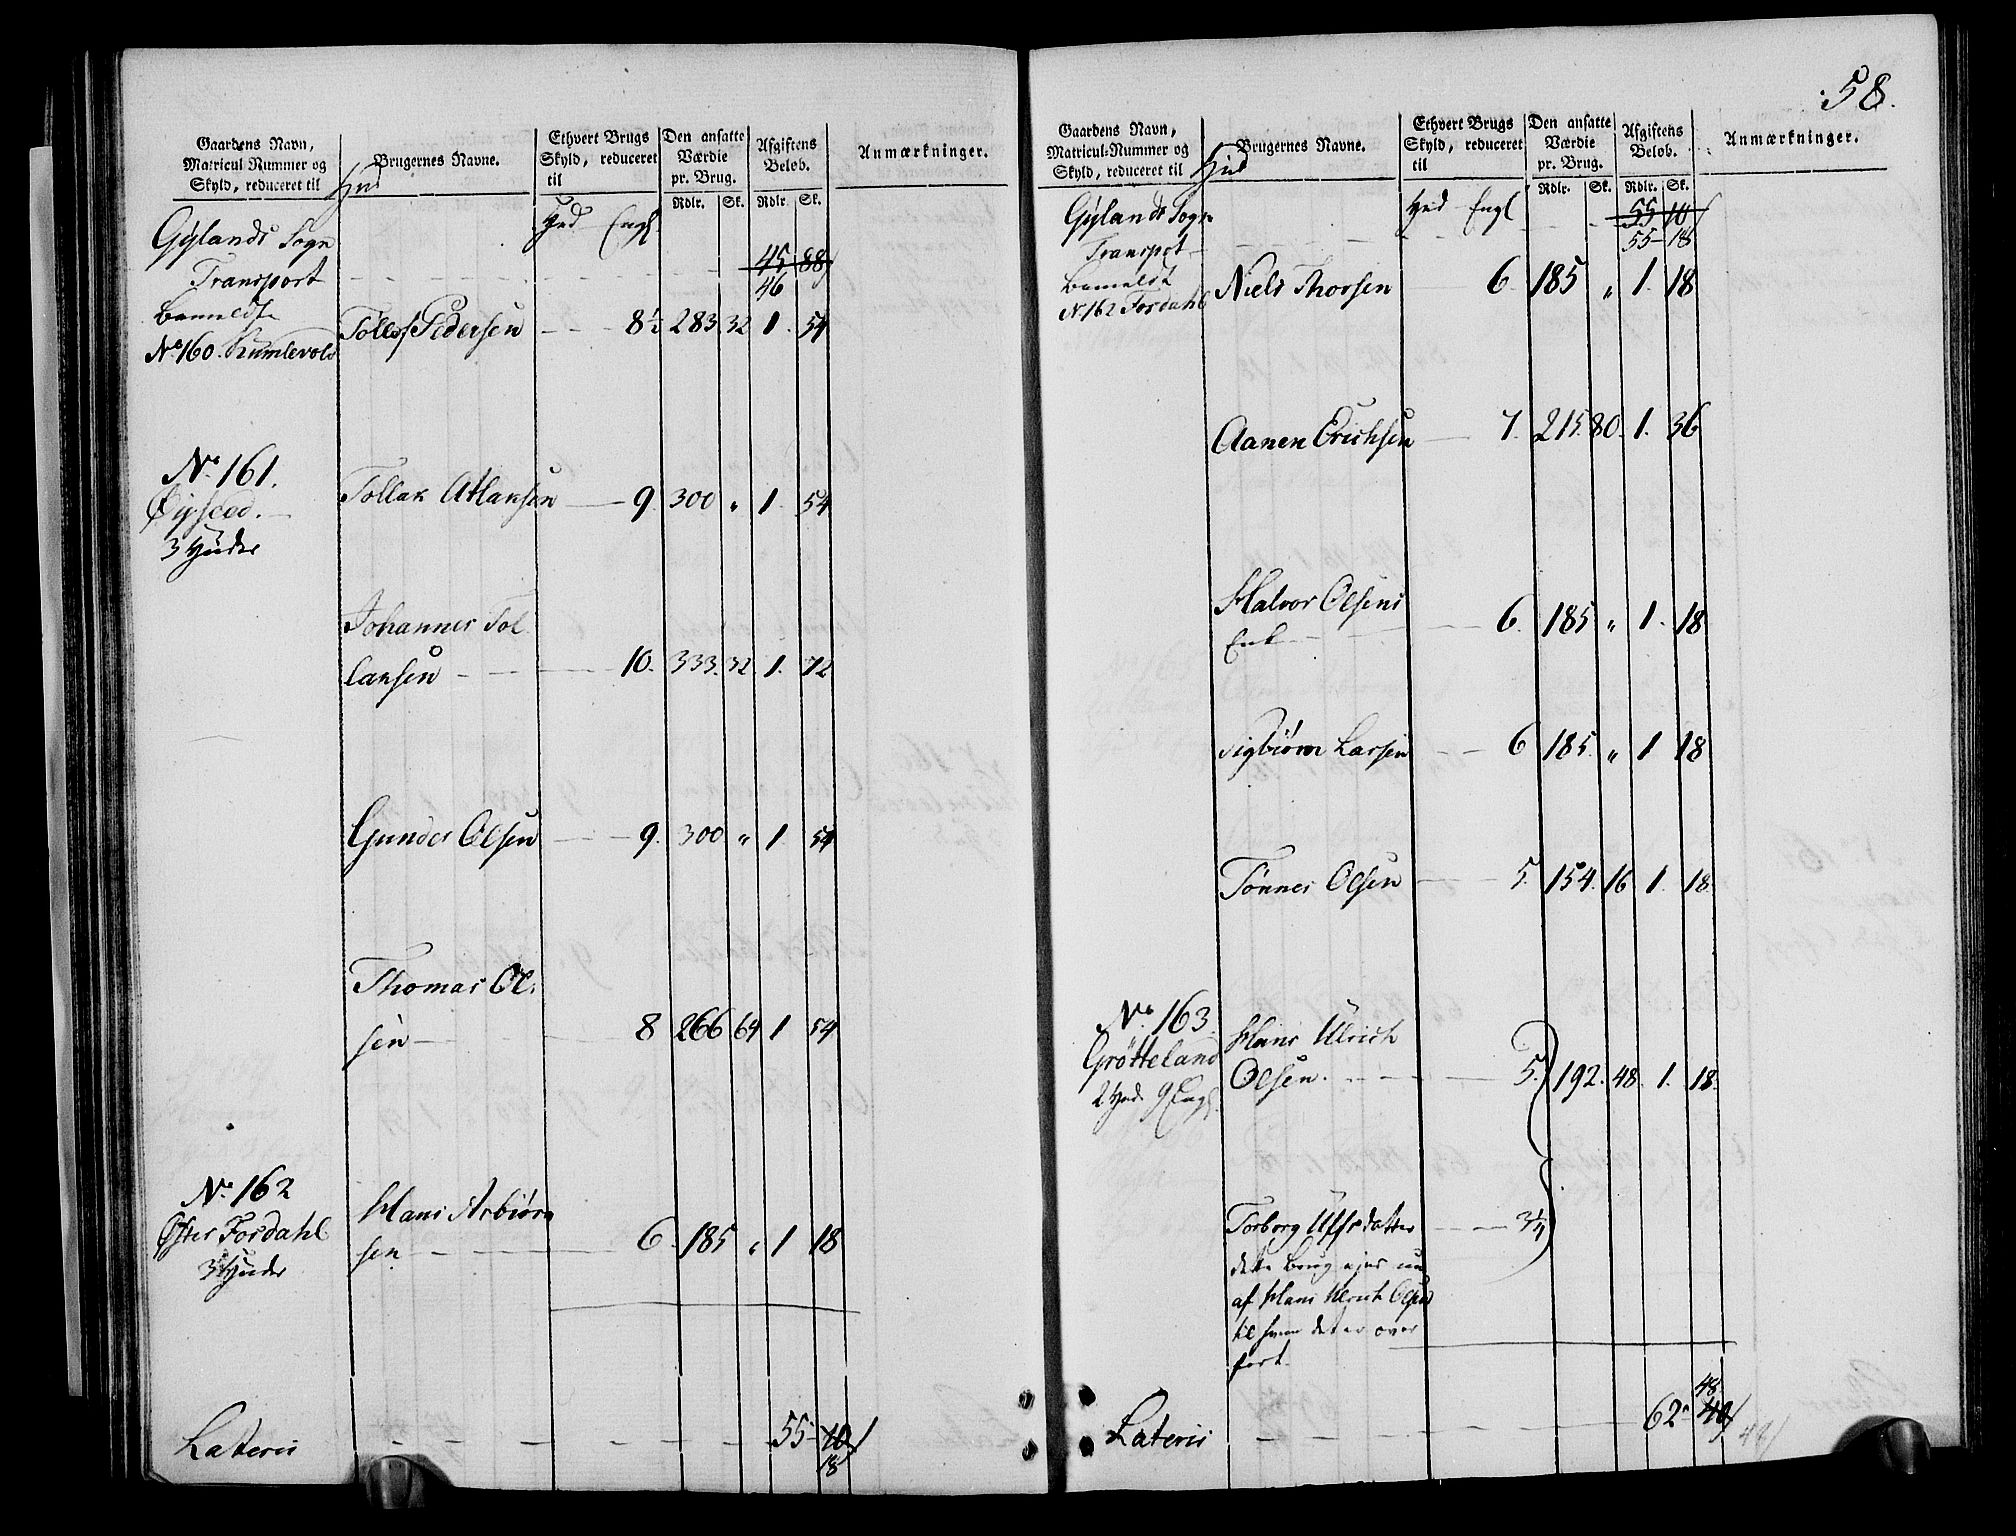 Gaardens Navn, Matricul Nummer og Skyld, reduceret til Hud | Brugernes Navne. | Ethvert Brugs Skyld, reduceret til | Den ansatte Værdie pr. Brug. | Afgiftens Beløb. | Anmærkninger.
Rdlr. Sk. Rdlr. Sk.
Gylands Sogn Hud Engl
45 88
Transport 46
Bemeldte
No 160. Tollef Pedersen 8½ 283 32 1. 54
No 161. Tollak Atlaksen 9. 300 " 1. 54
3 Huder
Johannes Tol
laksen 10. 333. 32 1. 72
Gunder Olsen 9. 300 " 1. 54
Thomas Ol
sen 8 266 64 1 54
No 162
Øster Fordahl Hans Asbiørn
3 Huder sen 6. 185 " 1 18
Lateris 55 10
18
58.
Gaardens Navn, Matricul-Nummer og Skyld, reduceret til Hud | Brugernes Navne. | Ethvert Brugs Skyld, reduceret til | Den ansatte Værdie pr. Brug. | Afgiftens Beløb. | Anmærkninger.
Rdlr. Sk. Rdlr. Sk.
Gylands Sogn Hud Engl 55 10
Transport 55 18
Bemeldt
No 162 Fordahl Niels Thorsen 6. 185 " 1. 18
Aanen Erichsen 7. 215. 80. 1. 36
Halvor Olsens
Enke 6. 185 " 1. 18
Sigbiørn Larsen 6 185. " 1 18
Tönnes Olsen 5. 154. 16 1. 18.
No 163. Hans Ulrich
Grötteland Olsen. 5. 192. 48. 1. 18.
2 Hud. 9 Engl.
Torborg Ulfsdatter
dette Brug ejes nu
af Hans Ulrich Olsen
til hvem det er over
fört.
48
Lateris 62 40
48